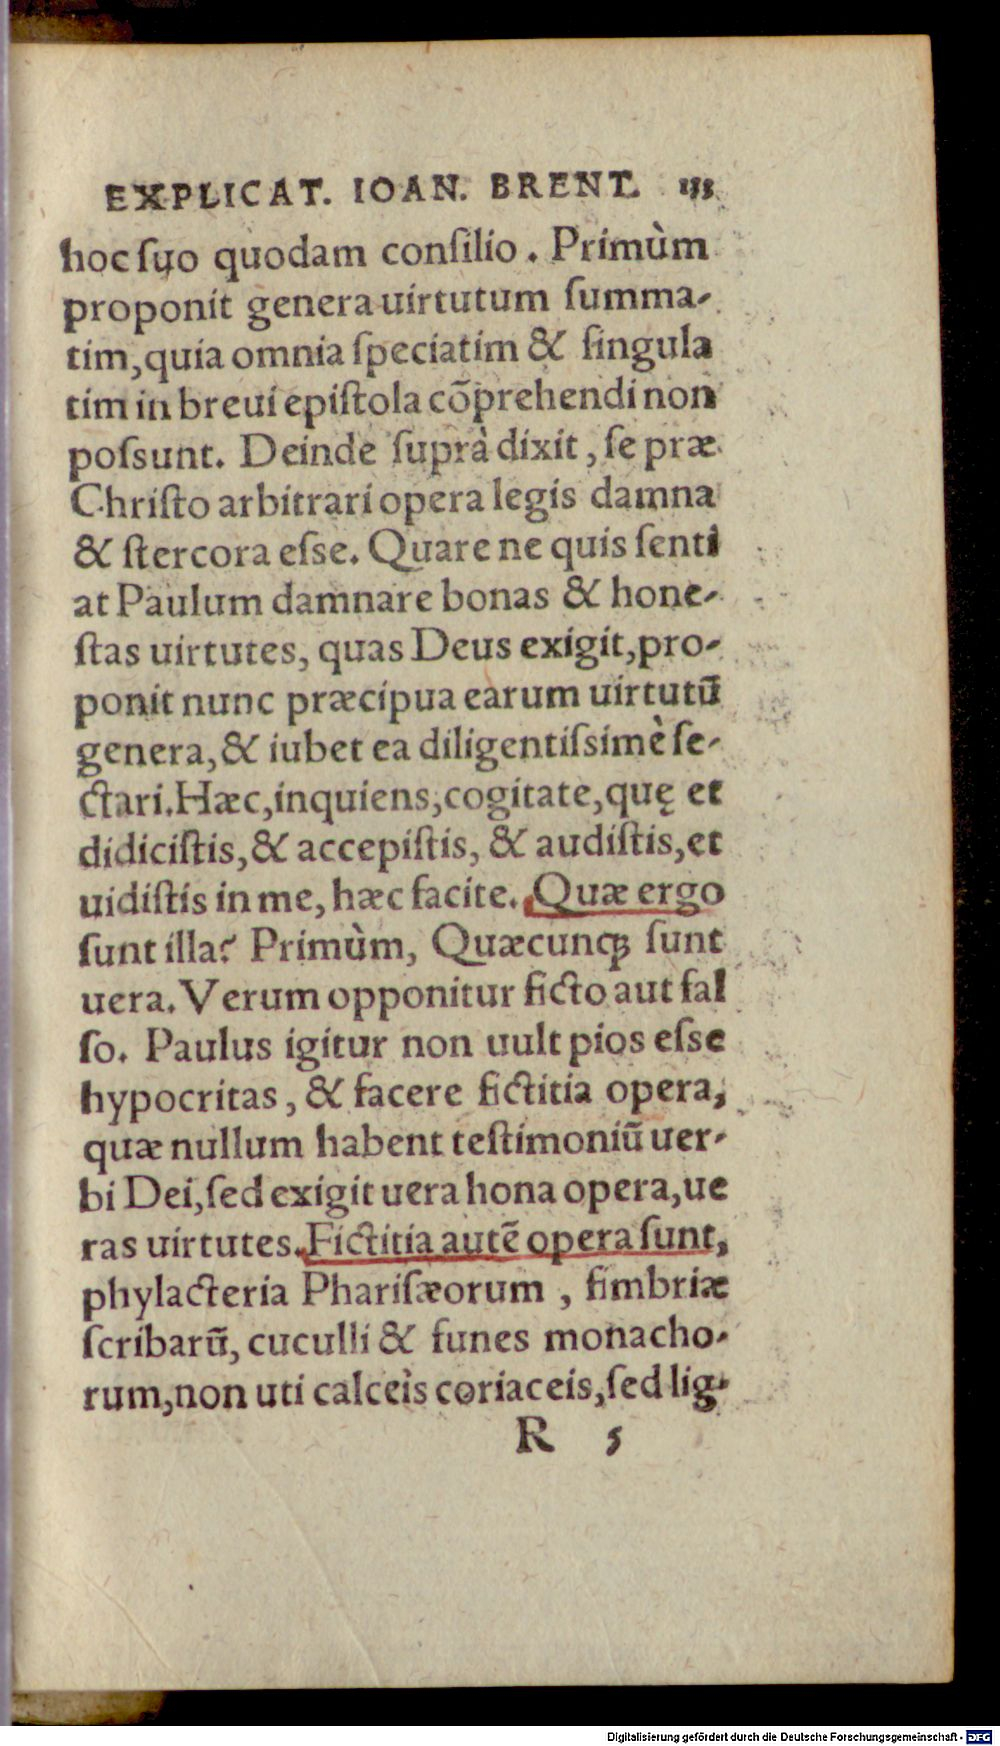 EXPLICAT. IOAN. BRENT. 133
hoc ſuo quodam conſilio. Primùm
proponit genera uirtutum ſumma-
tim, quia omnia ſpeciatim & ſingula
tim in breui epiſtola cõprehendi non
poſsunt. Deinde ſuprà dixit, ſe præ
Chriſto arbitrari opera legis damna
& ſtercora eſse. Quare ne quis ſenti
at Paulum damnare bonas & hone-
ſtas uirtutes, quas Deus exigit, pro-
ponit nunc præcipua earum uirtutũ
genera, & iubet ea diligentiſsimè ſe-
ctari. Hæc, inquiens, cogitate, quę et
didiciſtis, & accepiſtis, & audiſtis, et
uidiſtis in me, hæc facite. Quæ ergo
ſunt illa? Primùm, Quæcunq; ſunt
uera. Verum opponitur ficto aut fal
ſo. Paulus igitur non uult pios eſse
hypocritas, & facere fictitia opera,
quæ nullum habent teſtimoniũ uer-
bi Dei, ſed exigit uera hona opera, ue
ras uirtutes. Fictitia autẽ opera ſunt,
phylacteria Phariſæorum, fimbriæ
ſcribarũ, cuculli & funes monacho-
rum, non uti calceìs coriaceis, ſed lig-
R 5
Digitalisierung gefördert durch die Deutsche Forschungsgemeinschaft - DFG